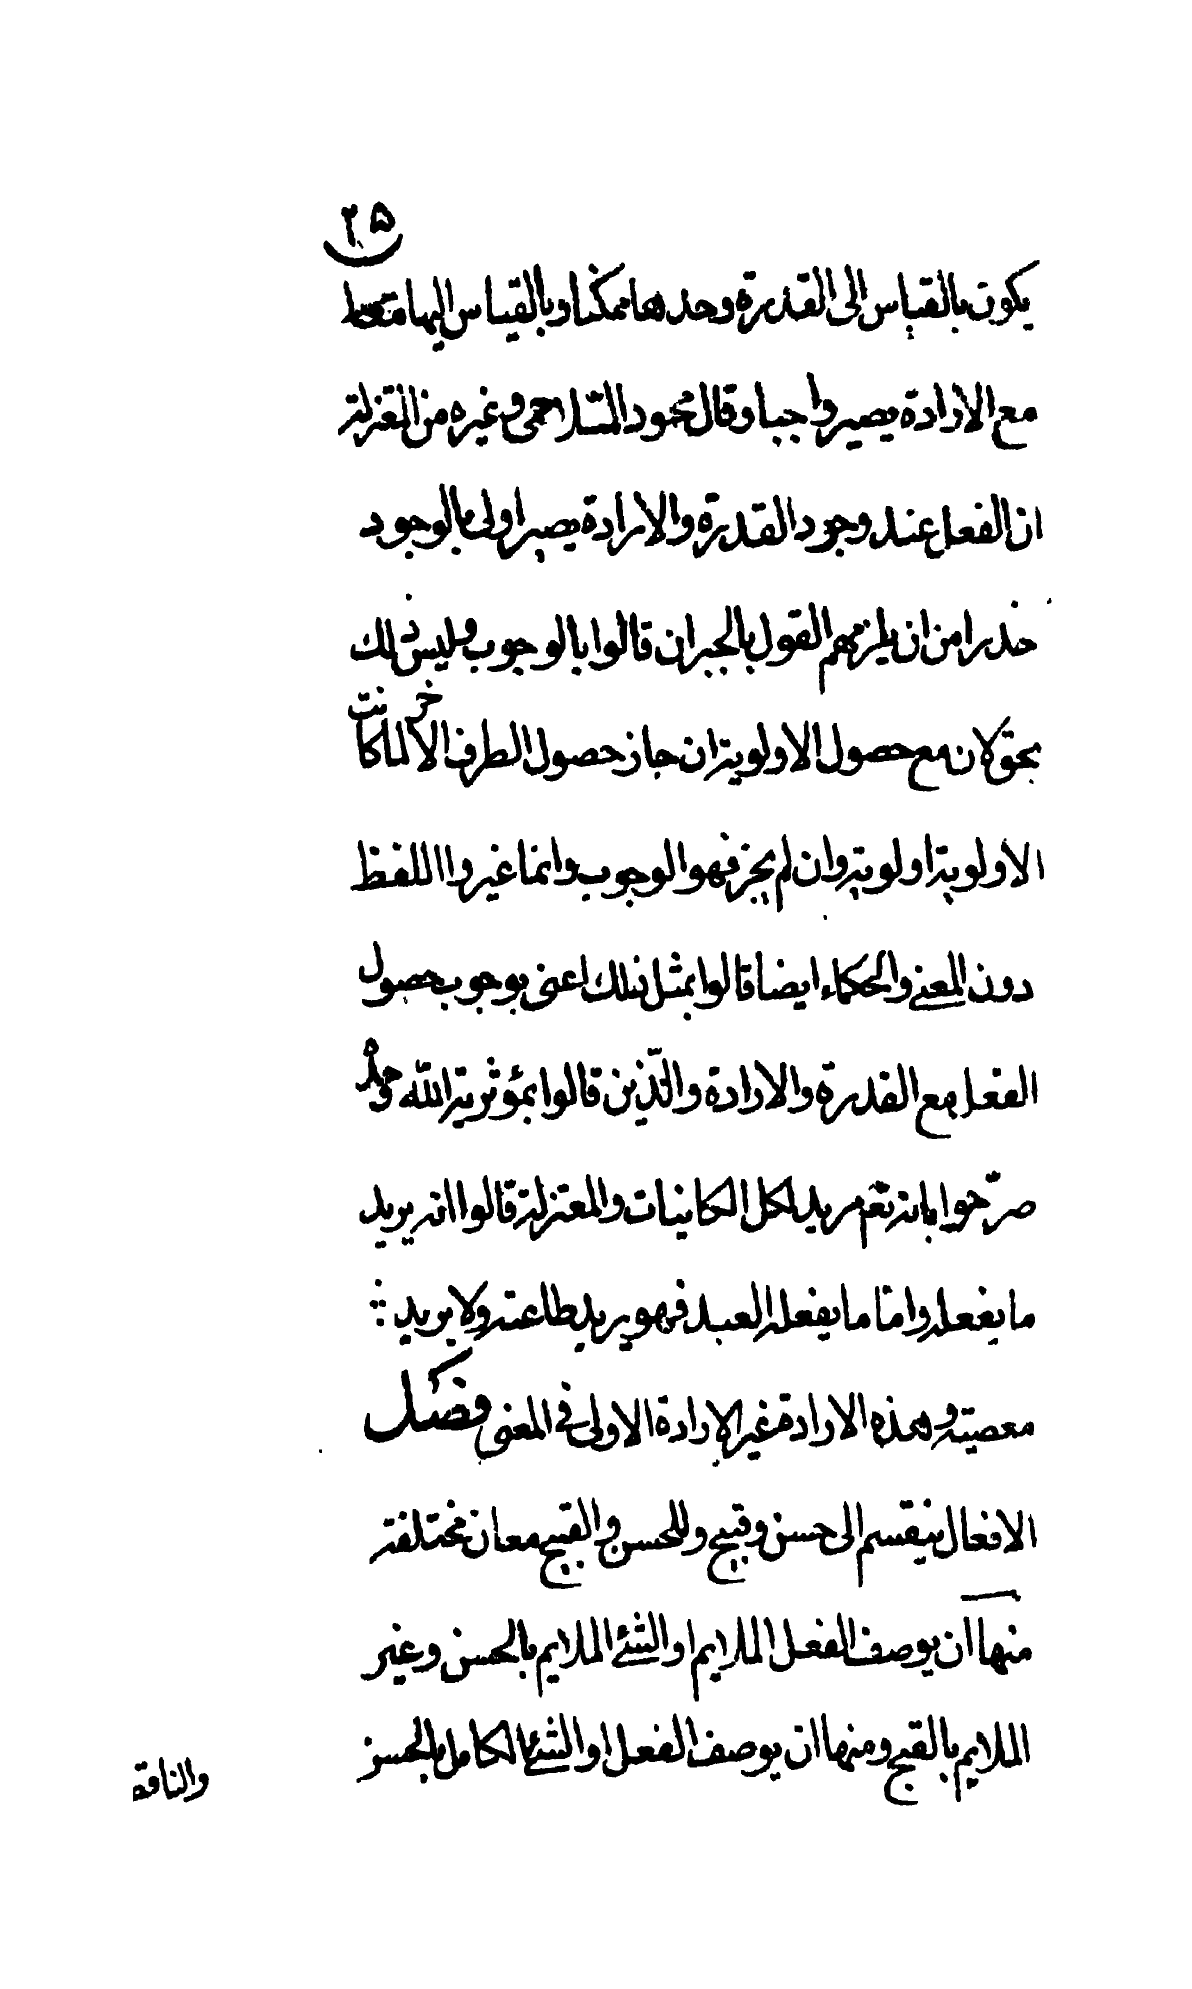 ٢٥
يكون بالقياس الى القدرة وحدها ممكنا وبالقياس اليها
مع الارادة يصير واجبا وقال محمود الملاحمى وغيره من المعتزلة
ان الفعل عند وجود القدرة والارادة يصير اولى بالوجود
حذرا من ان يلزمهم القول بالجبر ان قالوا بالوجوب وليس ذلك
بحق لان مع حصول الاولوية ان جاز حصول الطرف الاخر لما كانت
الاولوية اولوية وان لم يجز فهو الوجوب وانما غيروا اللفظ
دون المعنى والحكماء ايضا قالوا بمثل ذلك اعنى بوجوب حصول
الفعل مع القدرة والارادة والذين قالوا بمؤثرية الله وحده
صرّحوا بانه تعم مريد لكل الكائنات والمعتزلة قالوا انه يريد
ما يفعله وامّا ما يفعله العبد فهو يريد طاعته ولا يريد
معصيته وهذه الارادة غير الارادة الاولى فى المعنى فصل
الافعال ينقسم الى حسن وقبيح وللحسن والقبيح معان مختلفة
منها ان يوصف الفعل الملايم او الشئ الملايم بالحسن وغير
الملايم بالقبيح ومنها ان يوصف الفعل او الشئ الكامل بالحسن
والناقص